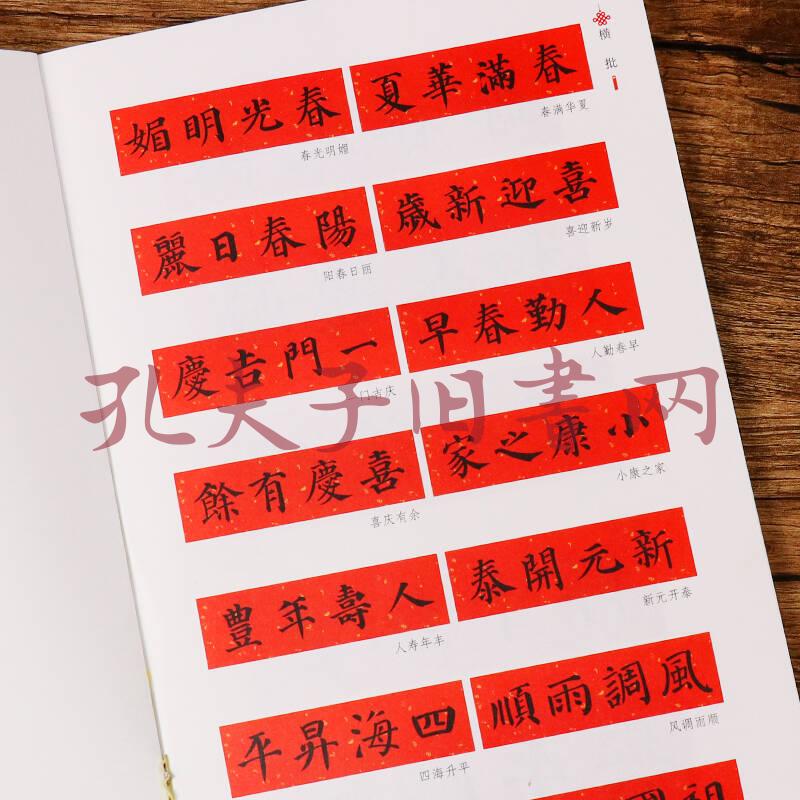 横批
春滿華夏
春满华夏
春光明媚
春光明媚
喜迎新歲
喜迎新岁
陽春日麗
阳春日丽
人勤春早
人勤春早
一門吉慶
一门吉庆
小康之家
小康之家
喜慶有餘
喜庆有余
新元開泰
新元开泰
人壽年豐
人寿年丰
風調雨順
风调雨顺
四海昇平
四海升平
孔夫子旧書网